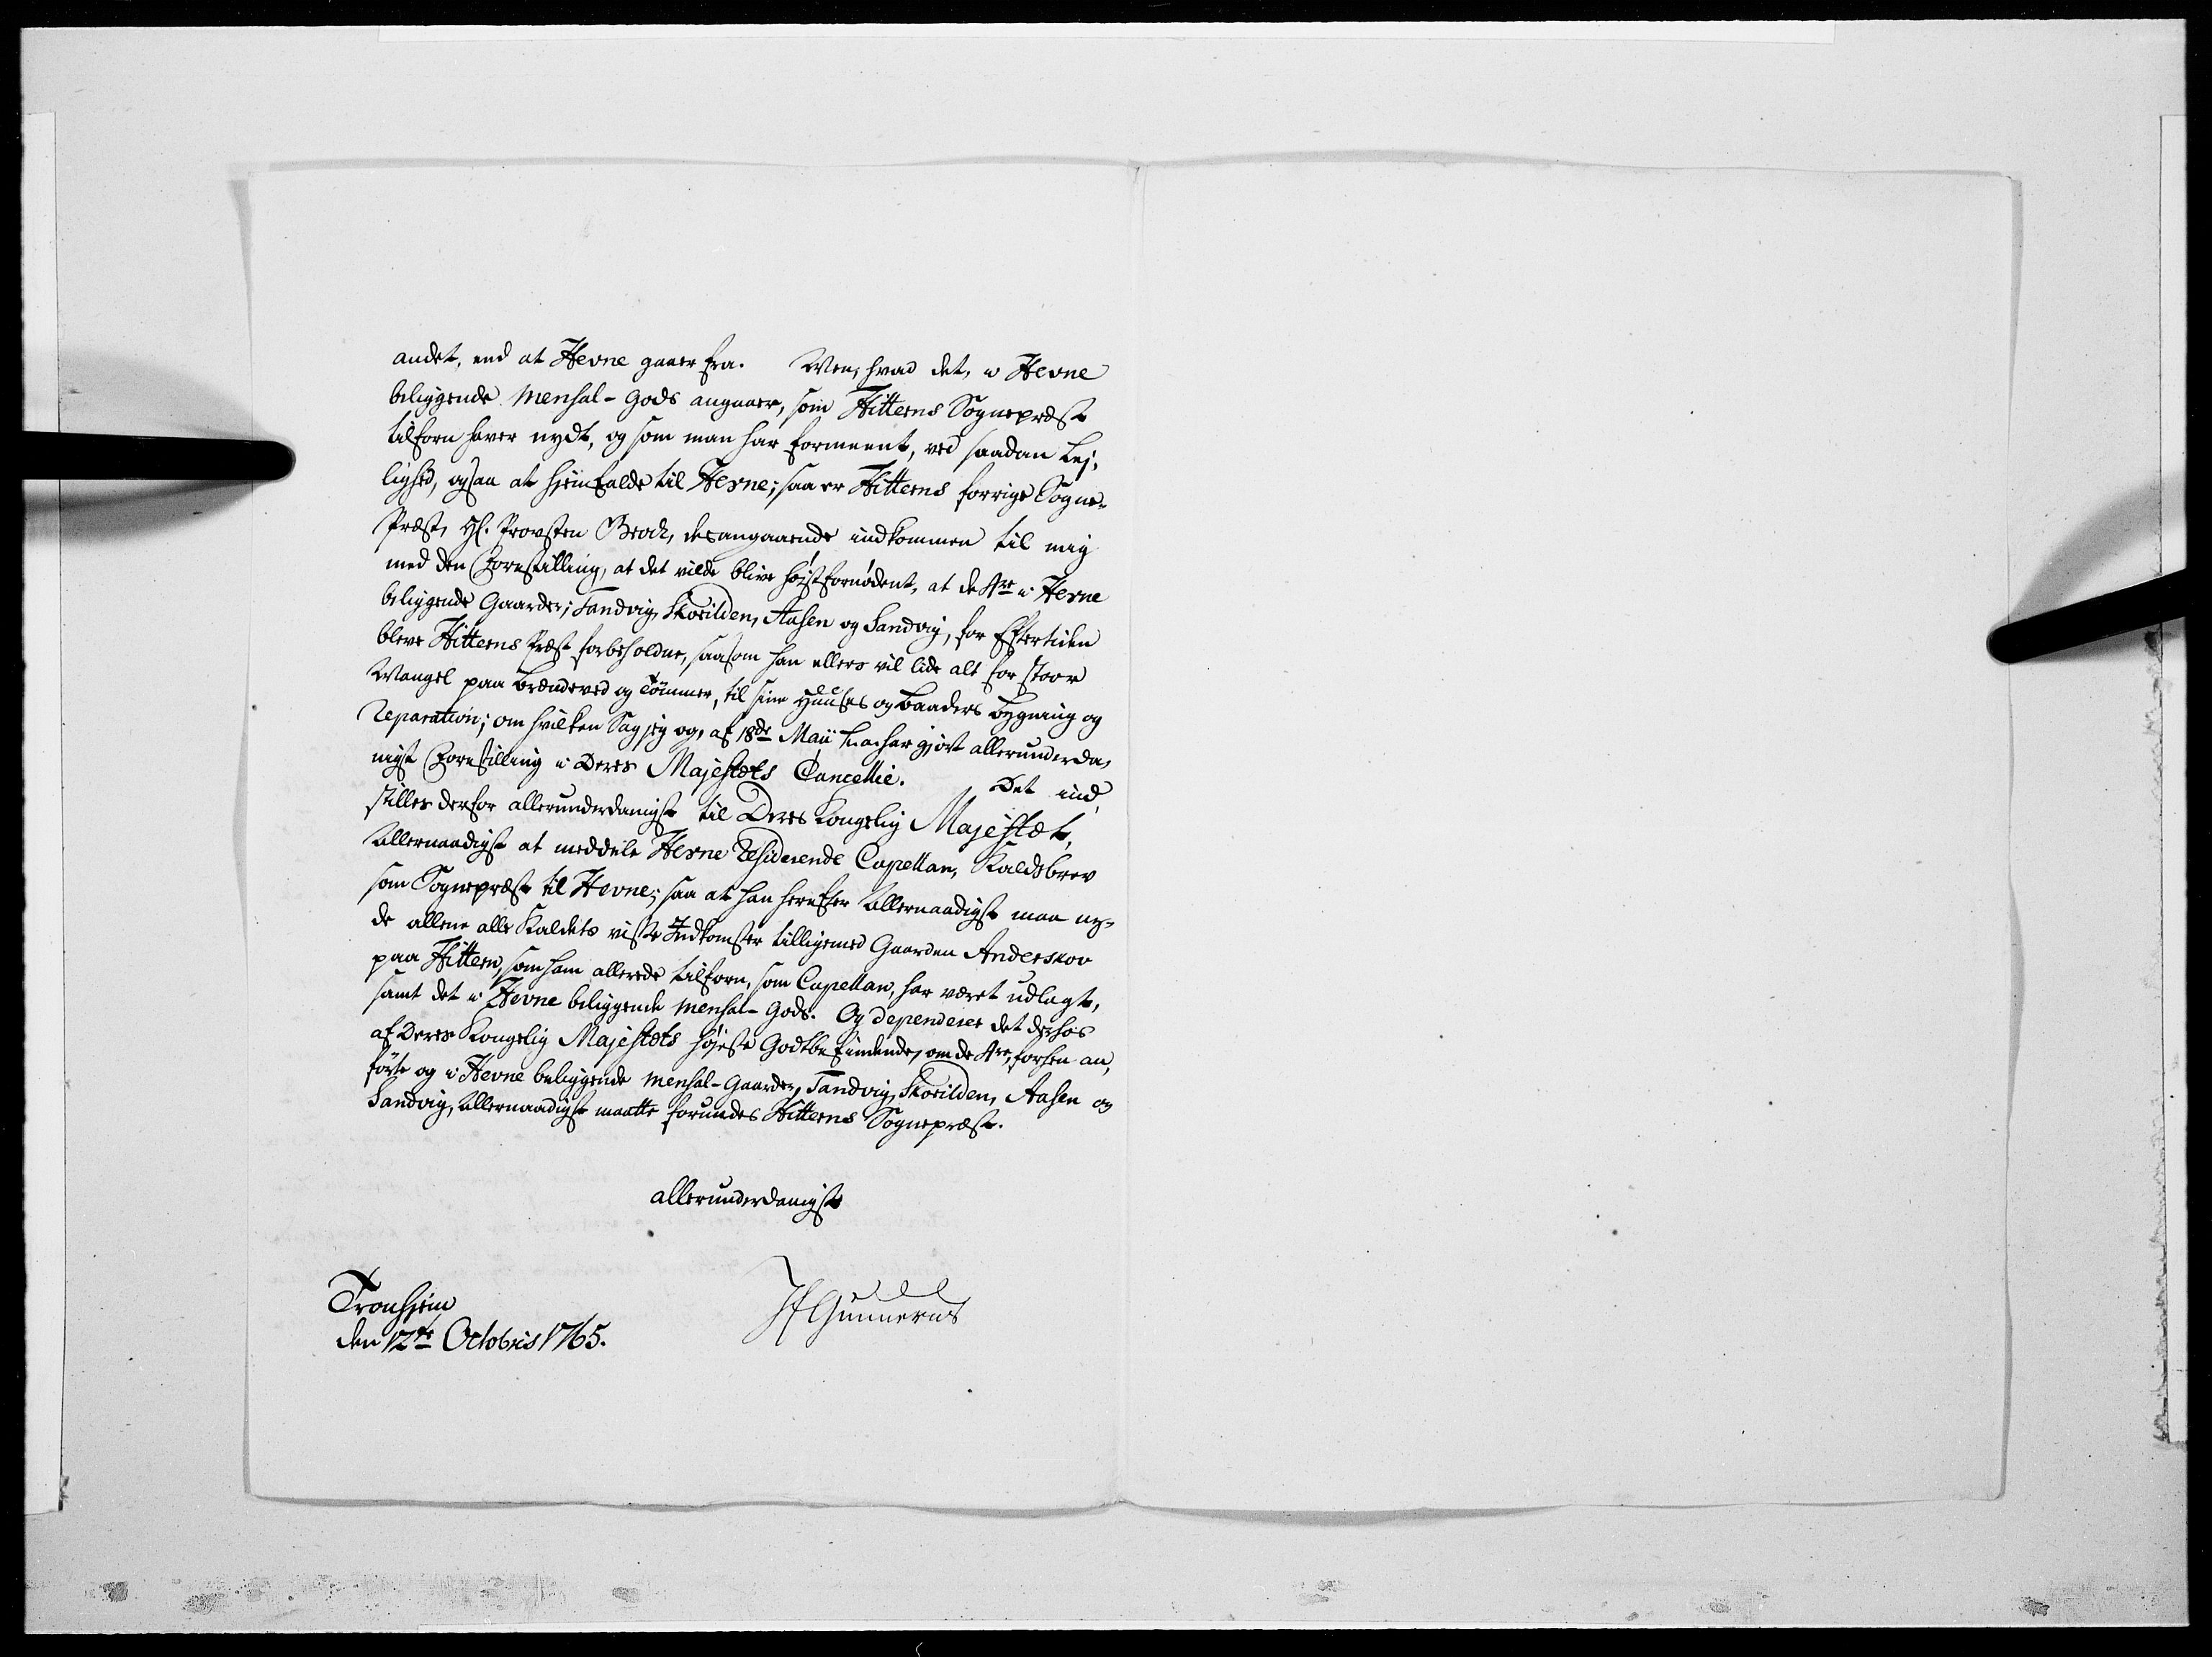 andet, end at Hevne gaaer fra. Men, hvad det, i Hevne
beliggende Mensal-Gods angaaer, som Hitterns Sognepræst
tilforn haver nydt, og som man har formeent, ved saadan Lej,
lighed, ogsaa at hjemfalde til Hevne; saa er Hitterns forrige Sogne-
Præst, Hr. Provsten Brock, desangaaende indkommen til mig
med den Forestilling, at det vilde blive høist fornødent, at de 4re i Hevne
beliggende Gaarder; Tandvig, Skorilden, Aasen og Sandvig, for Eftertiden
bleve Hitterns Præst forbeholdne, saasom han ellers vil lide alt for stoor
Mangel paa Brændeved og Tømmer, til sine Huuses og Baaders Bygning og
Reparation; om hvilken Sag jeg og, af 18de Maii h. a. har gjort allerunderda,
nigst Forestilling i Deres Majestæts Cancellie. Det ind,
stilles derfor allerunderdanigst til Deres Kongelig Majestæt,
Allernaadigst at meddele Hevne Residerende Capellan, Kaldsbrev
som Sognepræst til Hevne; saa at han herefter Allernaadigst maa ny-
de allene alle Kaldets visse Indkomster tilligemed Gaarden Anderskov
paa Hittern, som ham allerede tilforn, som Capellan, har været udlagt,
samt det i Hevne beliggende Mensal-Gods. Og dependerer det derhos
af Deres Kongelig Majestæts højeste Godtbefindende, om de 4re, forhen an,
førte og i Hevne beliggende Mensal-Gaarder, Tandvig, Skorilden, Aasen og
Sandvig, Allernaadigst maatte forundes Hitterns Sognepræst.
allerunderdanigst
Tronhjem
den 12te Octobris 1765.
JEGunnerus